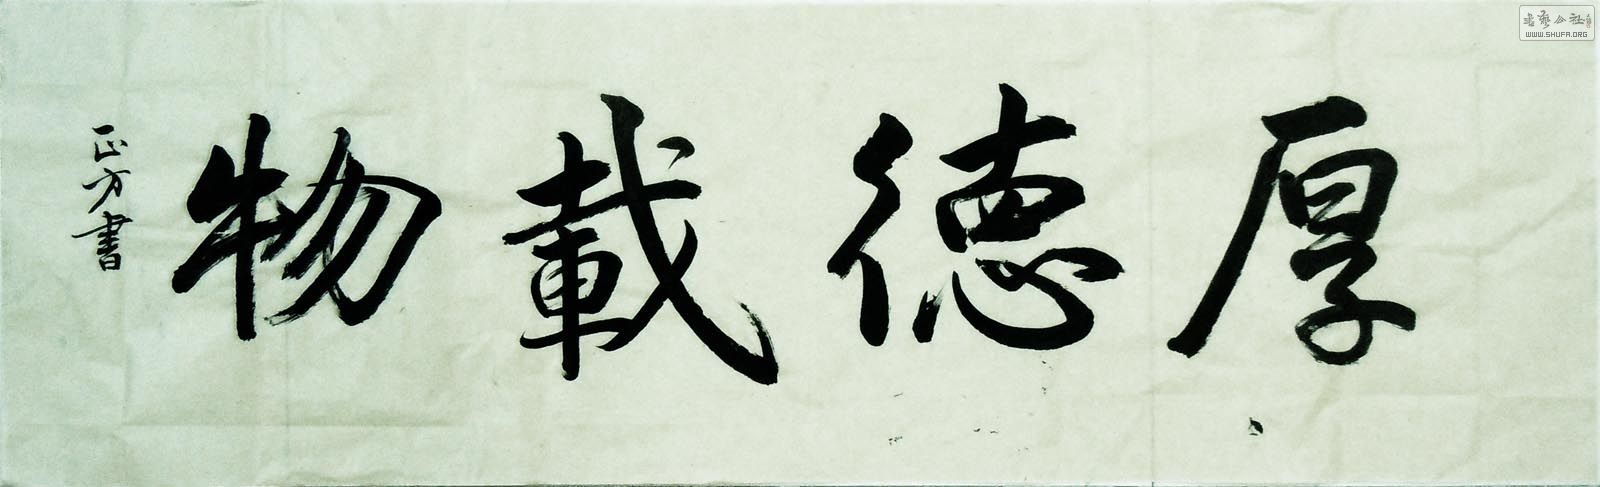 厚德載物
正方書
書藝公社
WWW.SHUFA.ORG